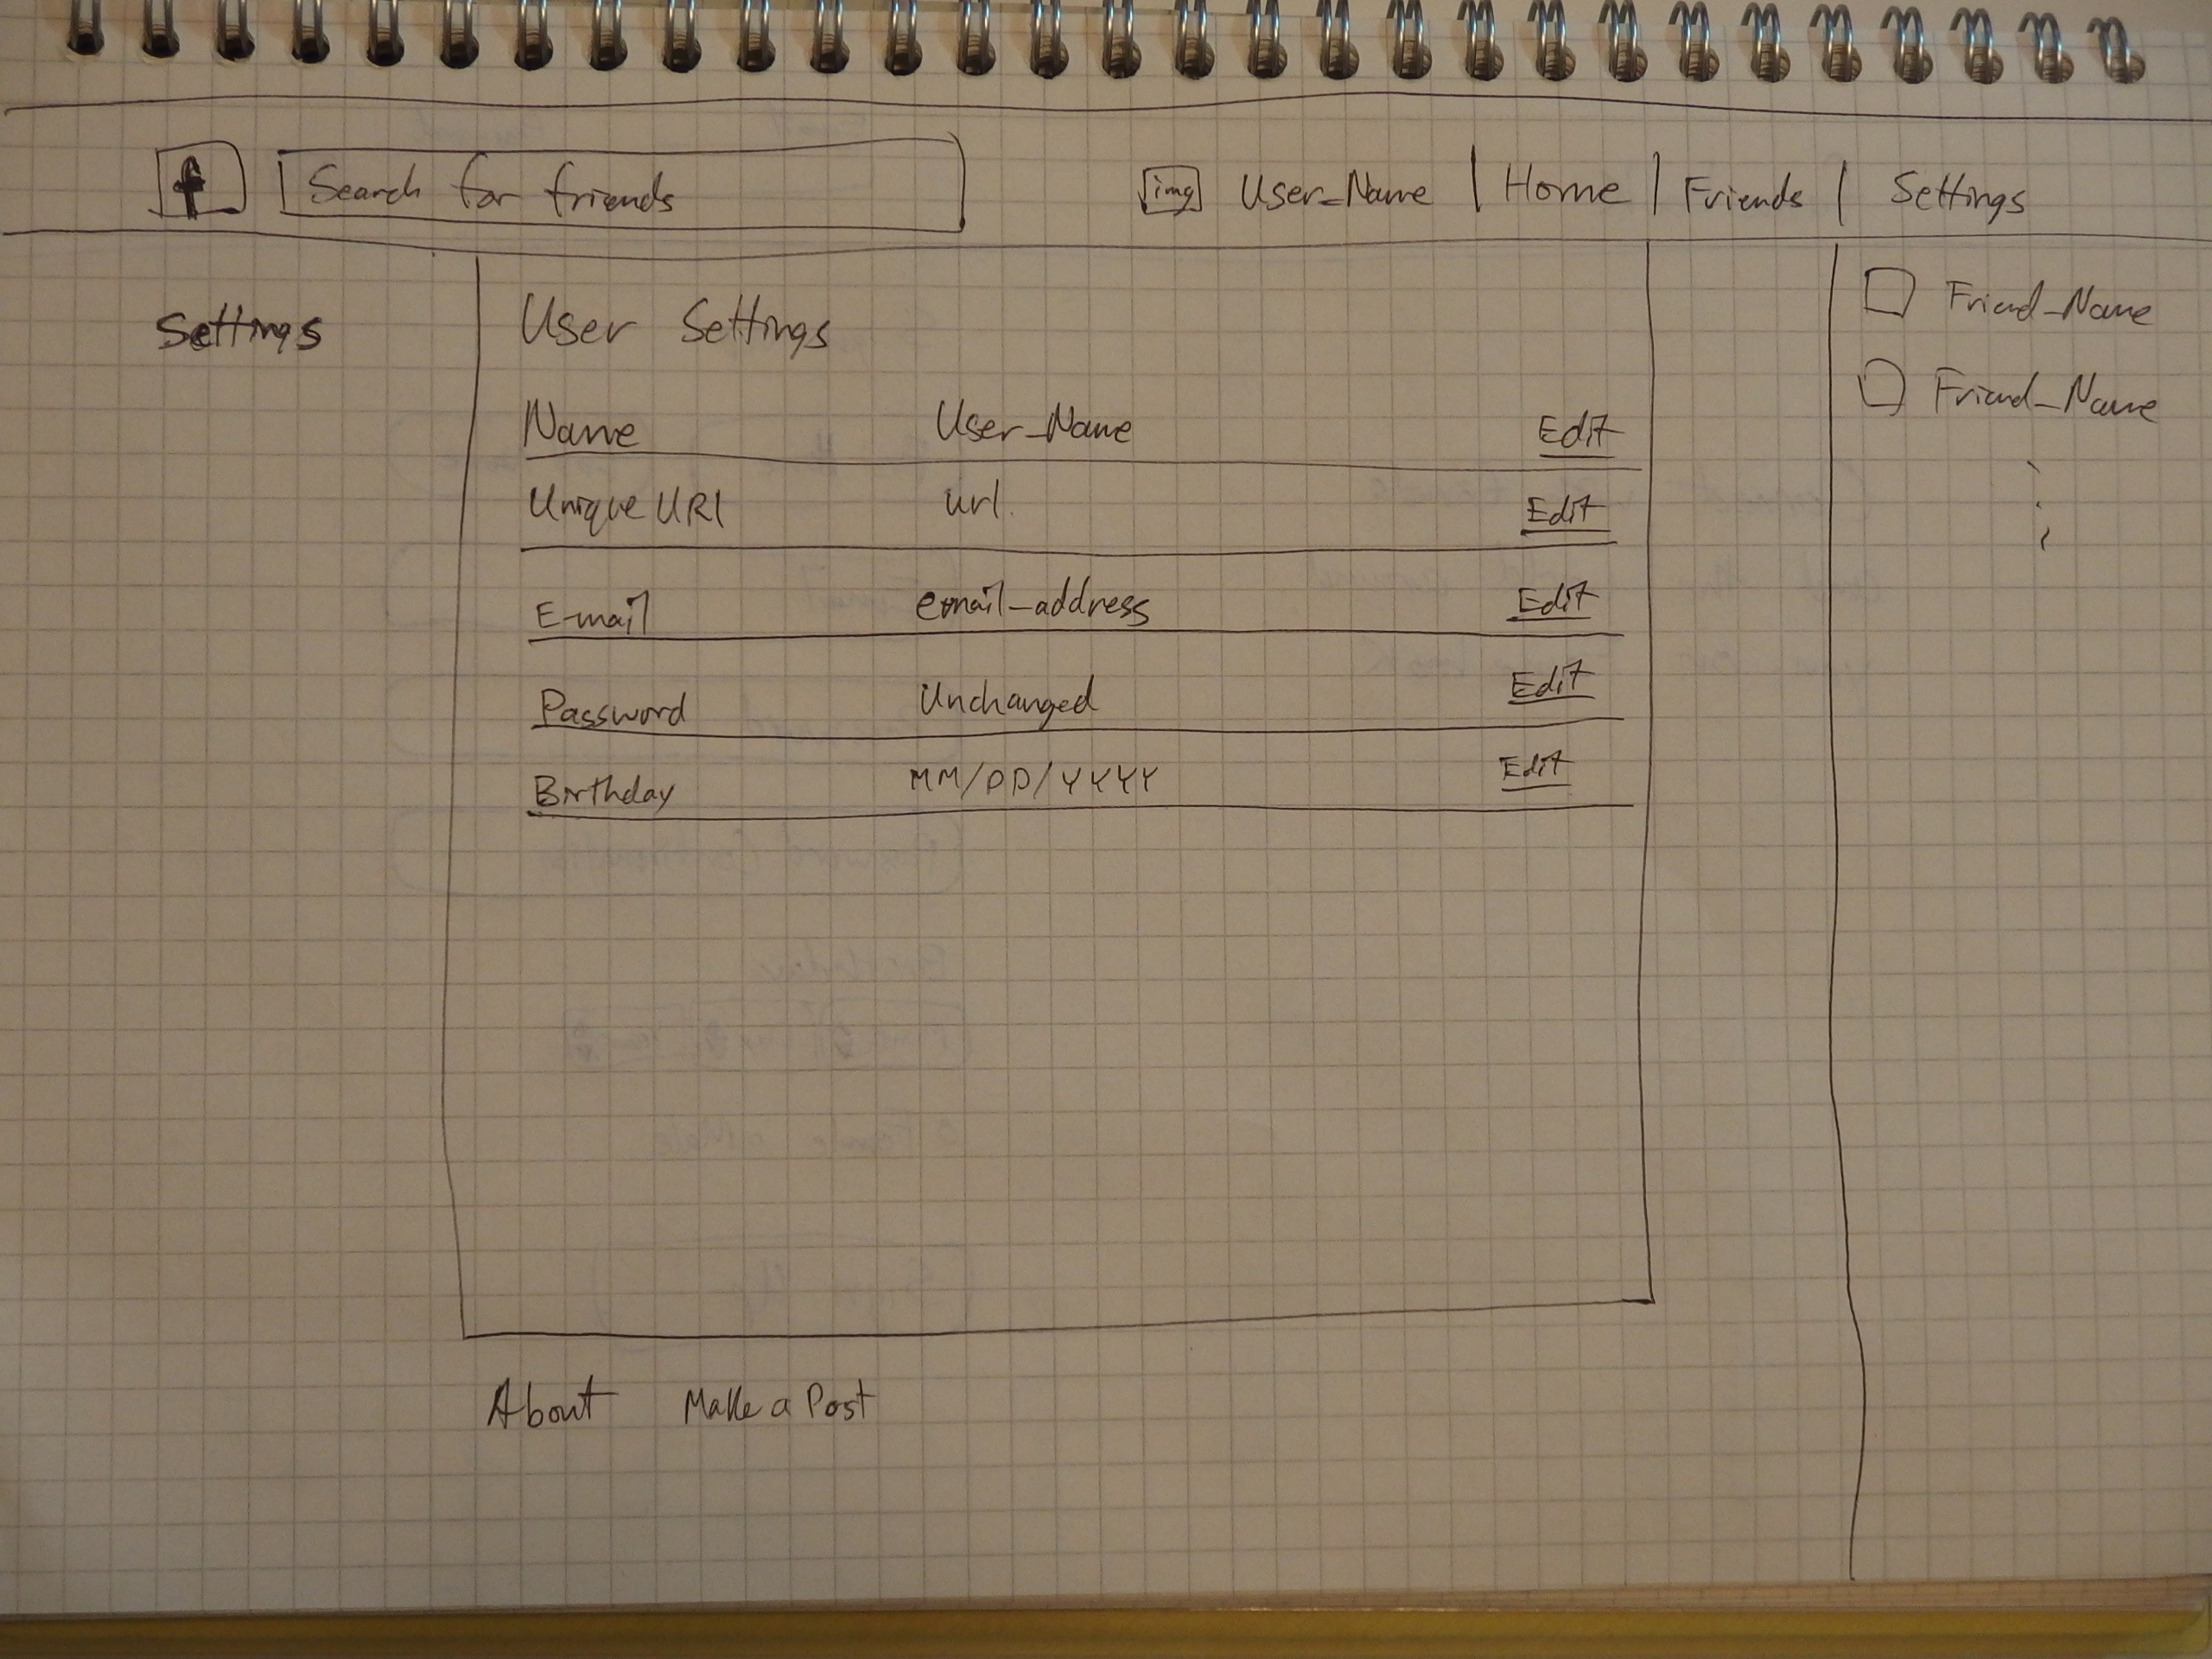 f Search for friends img User_Name | Home | Friends | Settings
Settings
User Settings
Name User_Name Edit
Unique URI url. Edit
E-mail email-address Edit
Password Unchanged Edit
Birthday MM/DD/YYYY Edit
About Make a Post
Friend_Name
Friend_Name